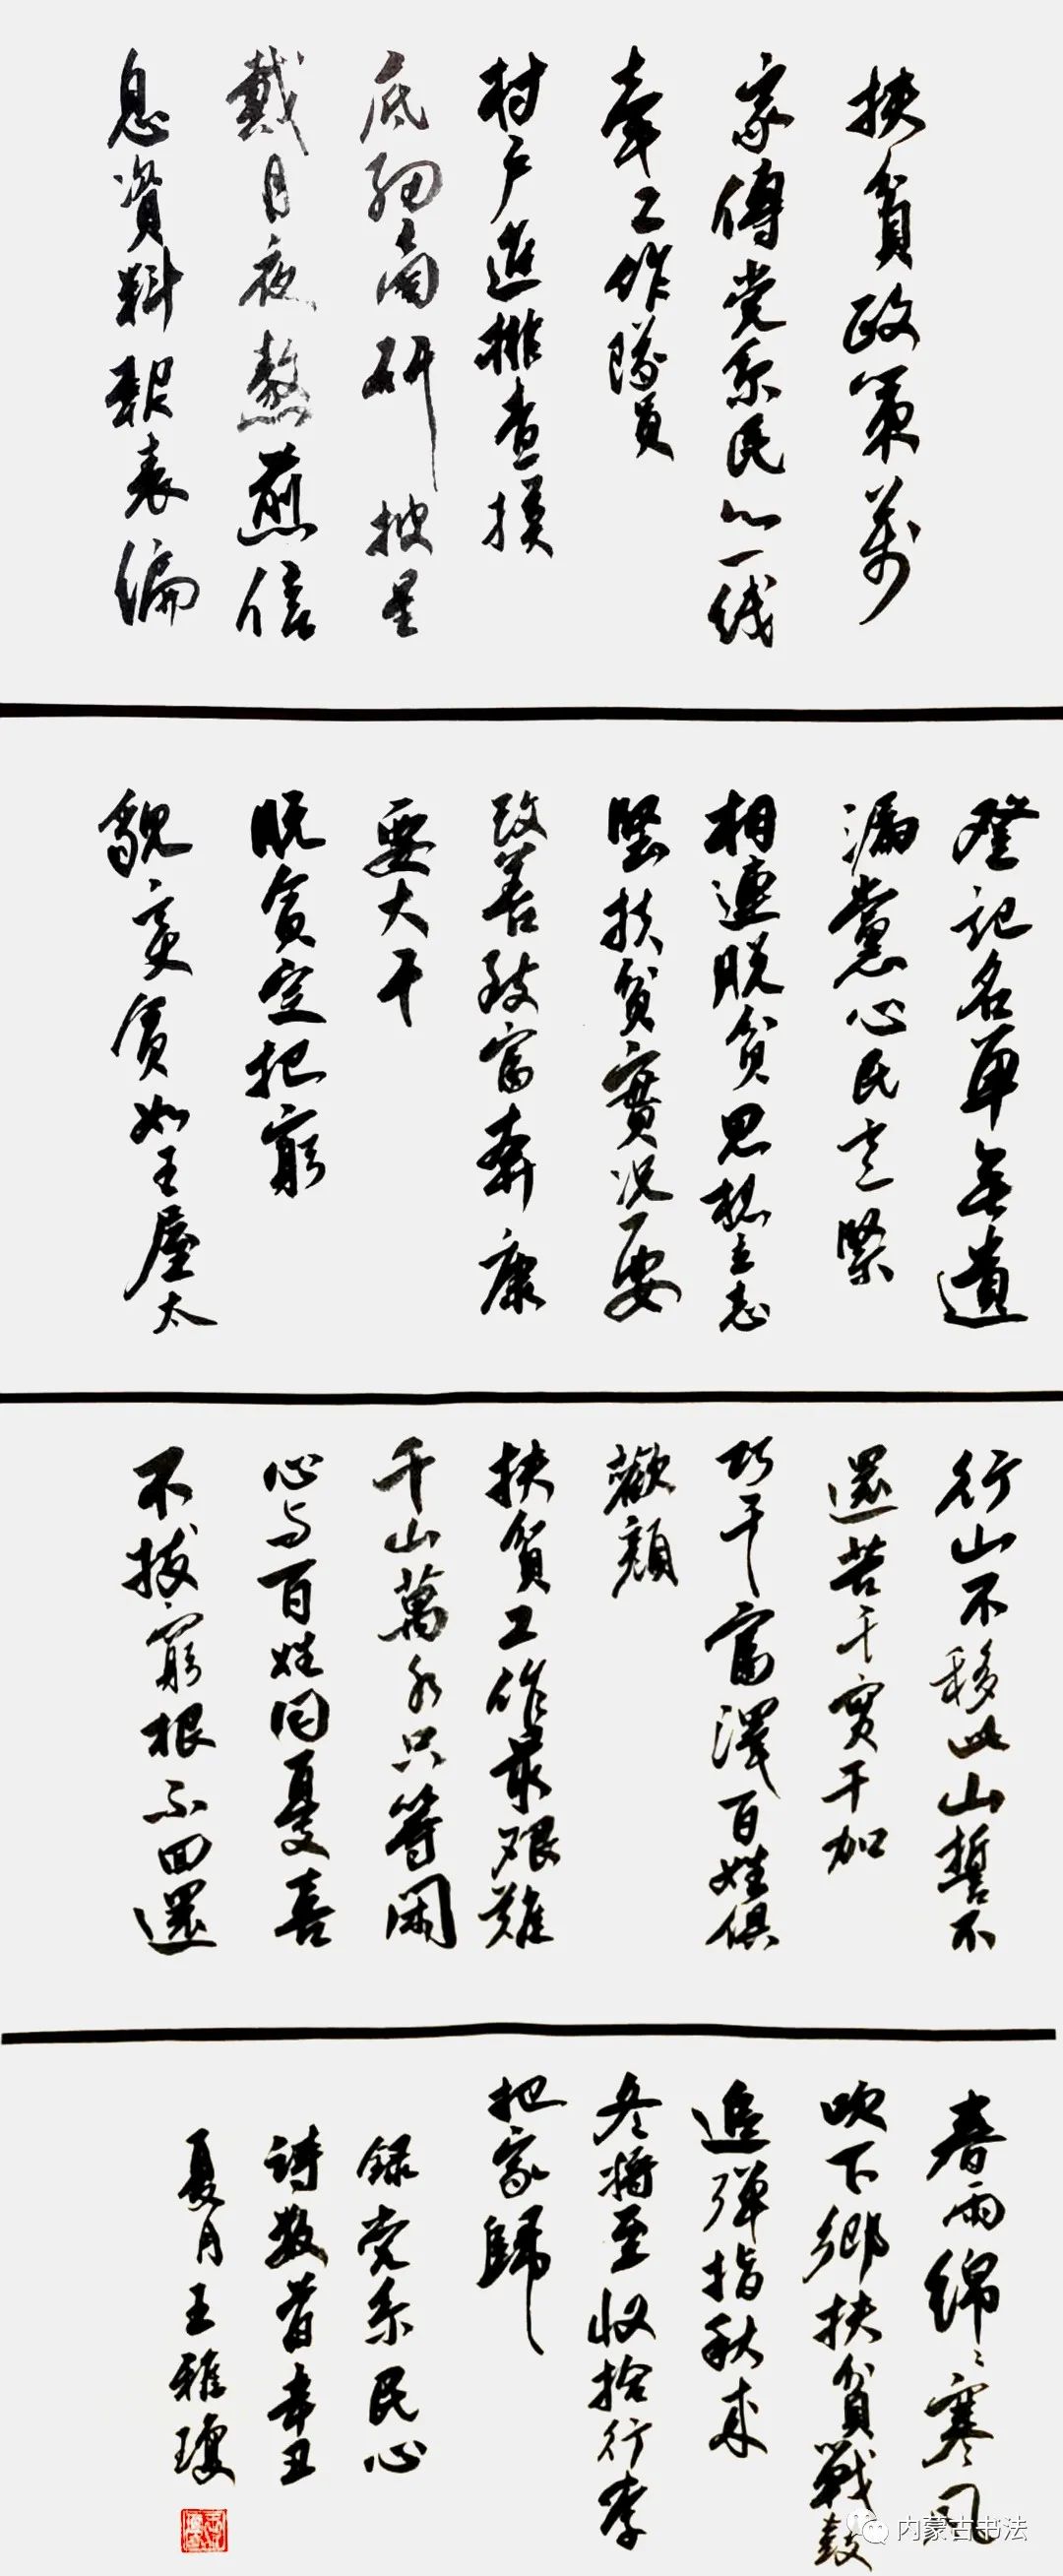 扶貧政策萬
家傳党系民心一线
牽工作隊員
村户進排查摸
底细商研披星
戴月夜熬煎信
息資料報表编
登记名單無遺
漏黨心民意緊
相連脱貧思想立志
堅扶貧實况要
改善致富奔康
要大干
脱貧定把窮
貌变貧如王屋太
行山不移此山誓不
還苦干實干加
巧干富澤百姓俱
歡顔
扶貧工作最艰難
千山萬水只等閑
心与百姓同憂喜
不拔窮根不回還
春雨綿綿寒风
吹下鄉扶貧戰鼓
追弹指秋来
冬將至收拾行李
把家歸
録党系民心
詩数首辛丑
夏月王雅瓊
内蒙古书法